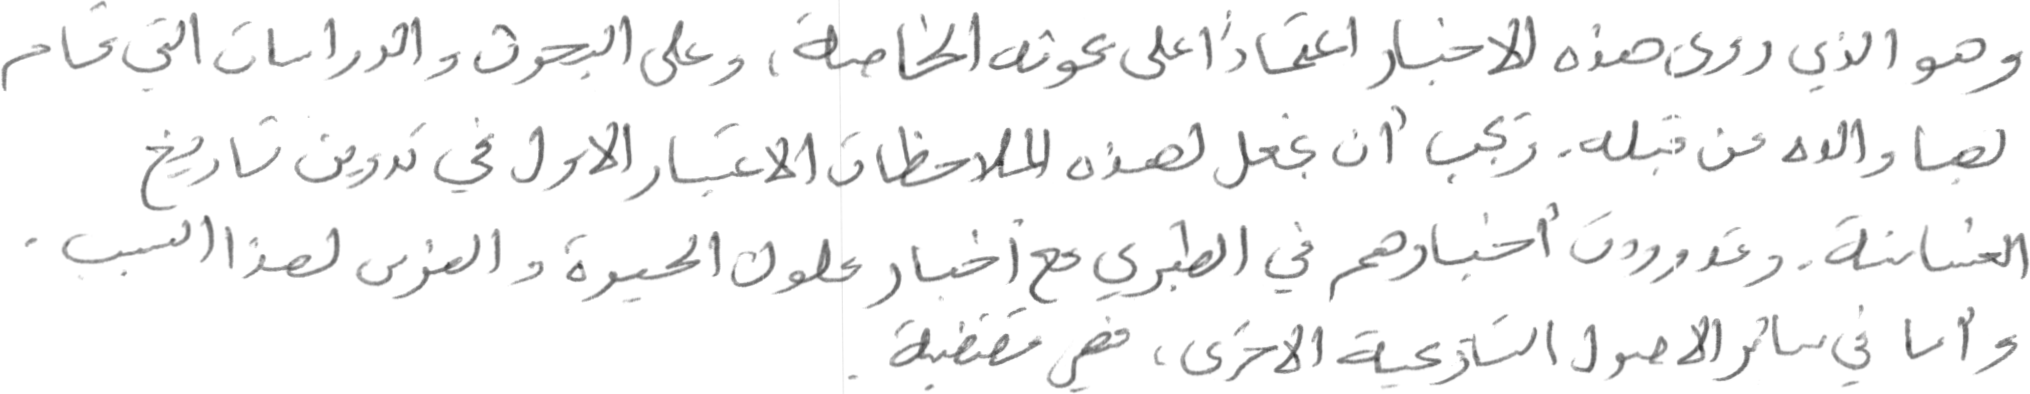 وهو الذي روى هذه الاخبار اعتمادًا على بحوثه الخاصة، وعلى البحوث والدراسات التي قام
بها والده من قبله. ويجب أن نجعل لهذه الملاحظات الاعتبار الاول في تدوين تاريخ
الغساسنة. وقد وردت أخبارهم في الطبري مع أخبار ملوك الحيرة والفرس لهذا السبب.
وأما في سائر الاصول التاريخية الاخرى، فهي مقتضبة.